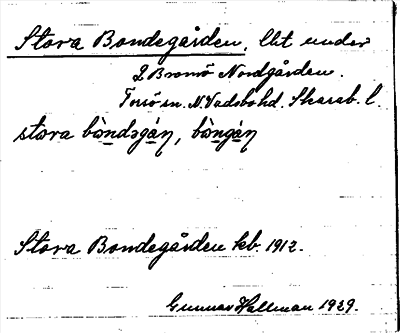 Stora Bondegården, lht under
2 Bromö Nordgården.
Torsö sn. N. Vadsbo hd. Skarab. l.
stora bòndəgán, bòngán
Stora Bondegården kb. 1912.
Gunnar Hallman 1929.